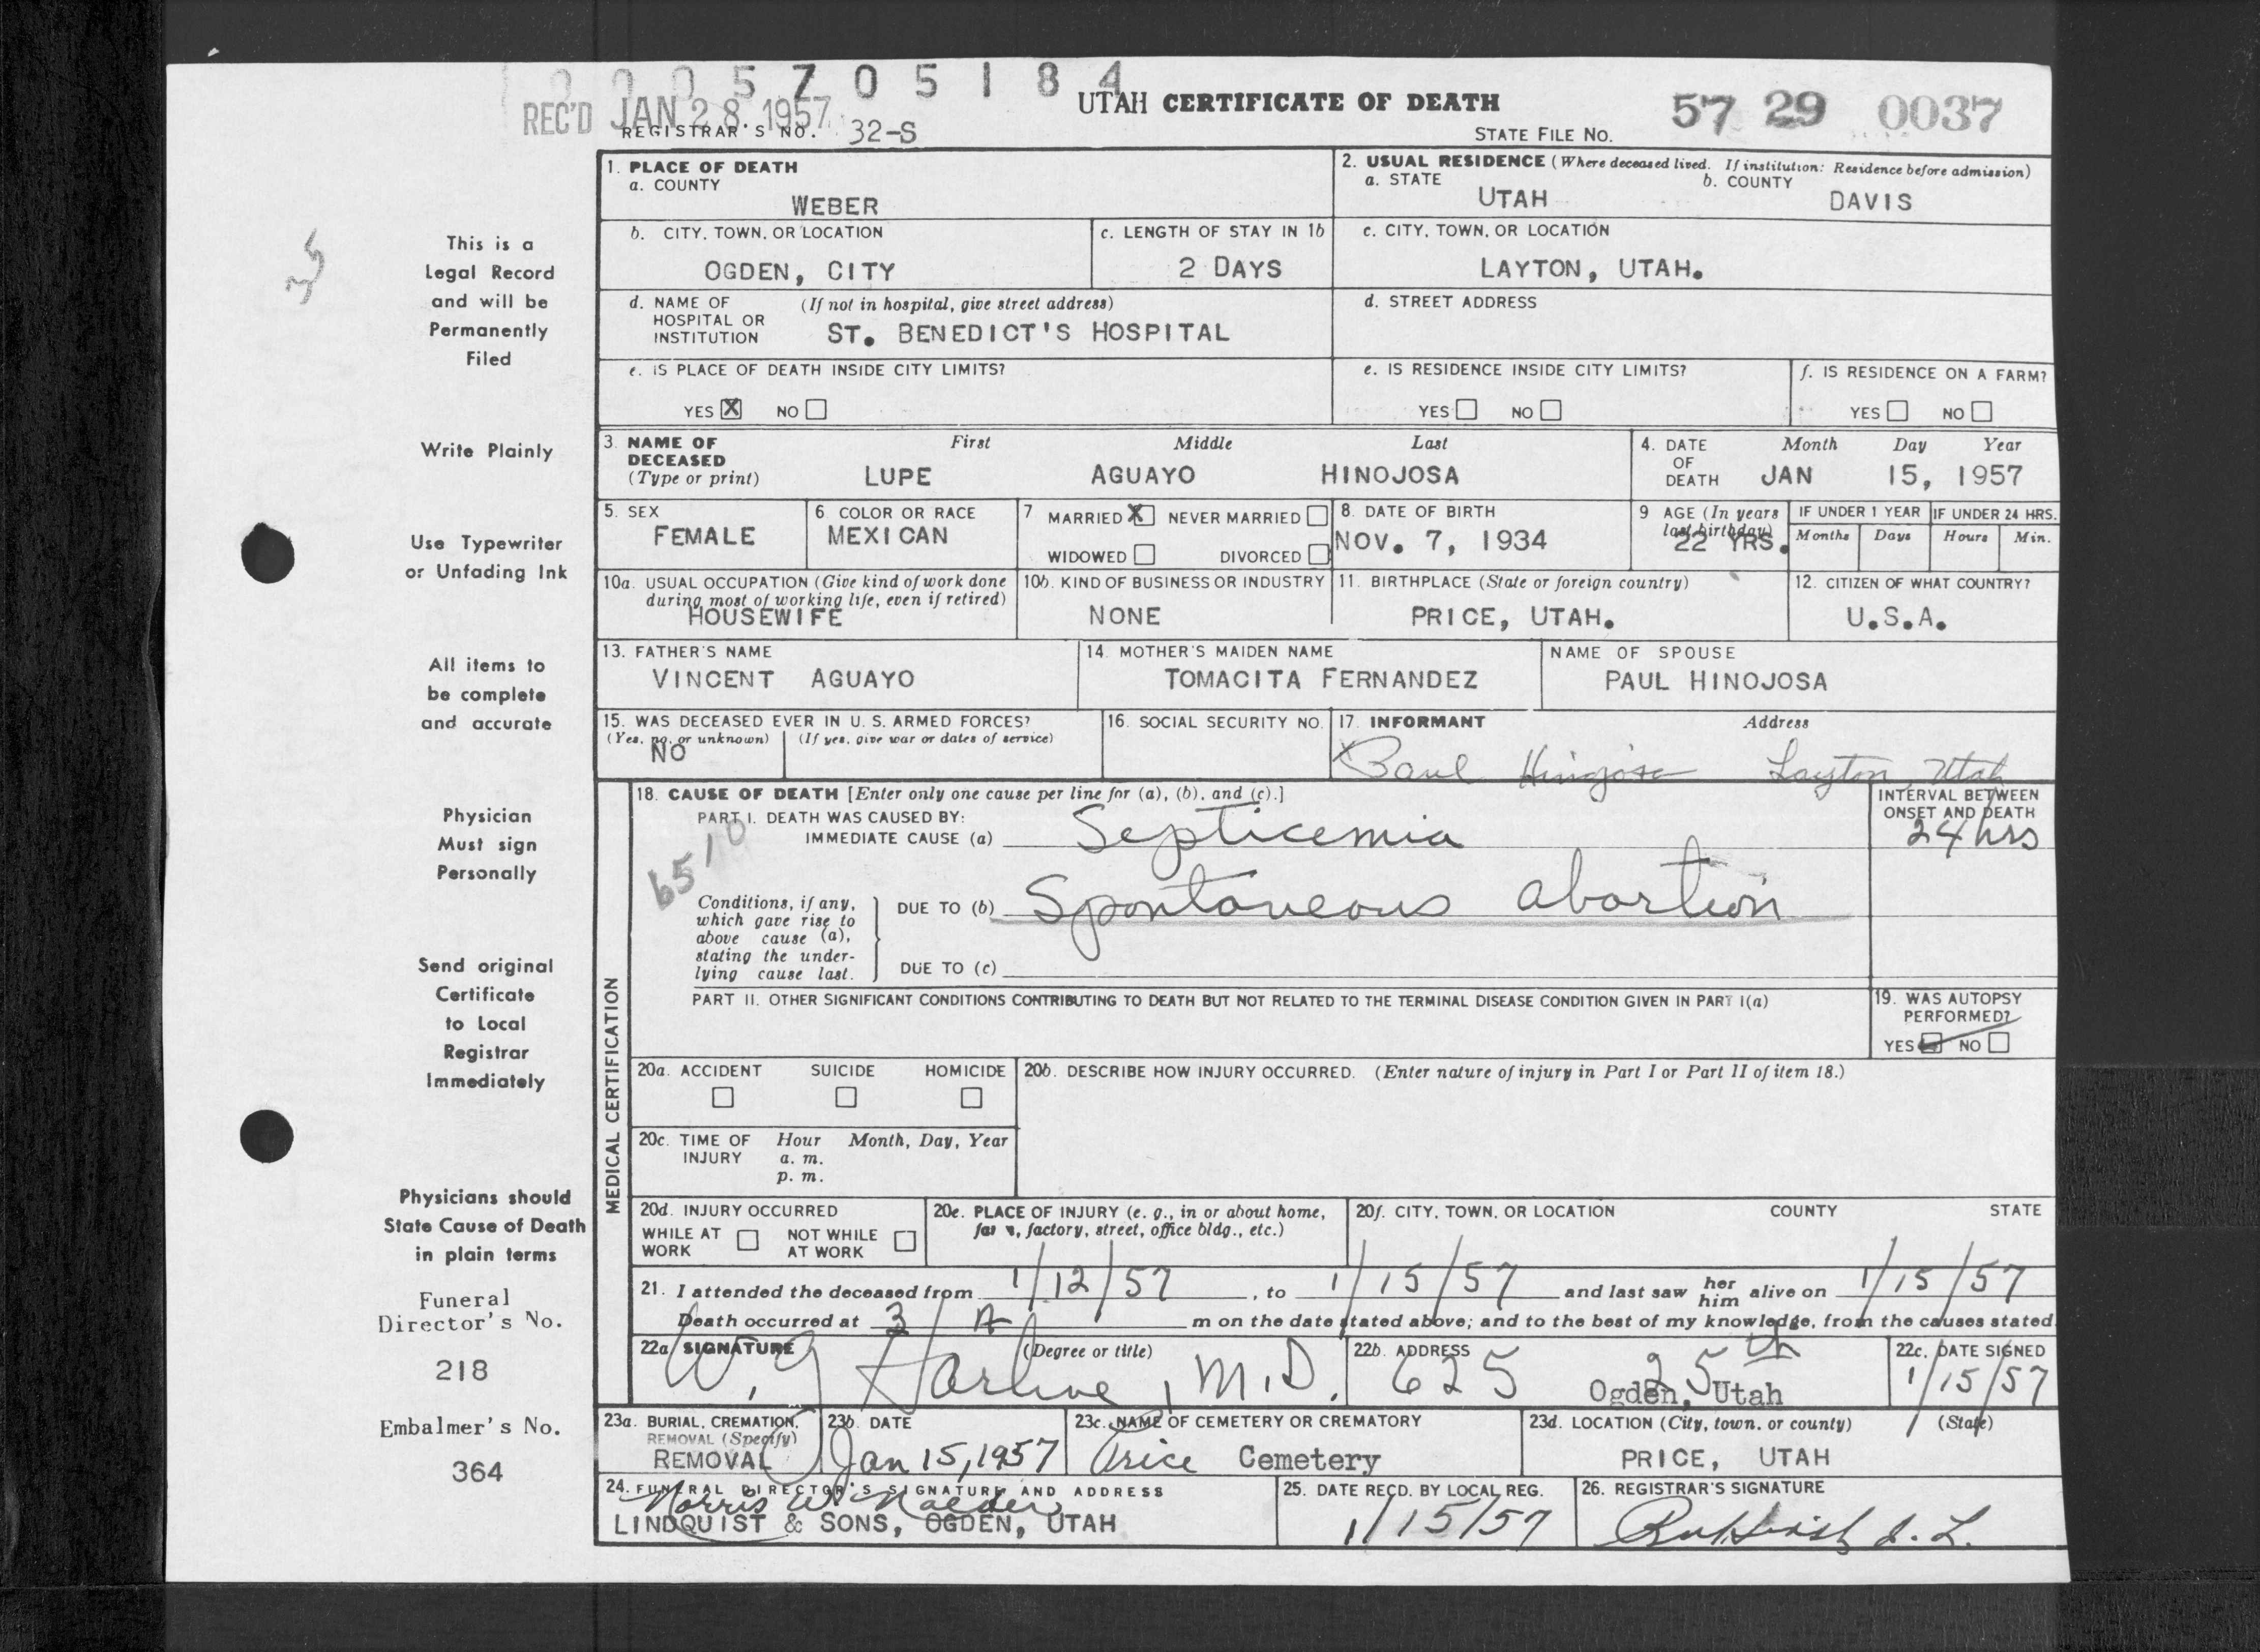 0005705184
REC'D JAN 28 1957
UTAH CERTIFICATE OF DEATH
57 29 0037
REGISTRAR'S NO. 32-S
STATE FILE NO.
This is a
Legal Record
and will be
Permanently
Filed
Write Plainly
Use Typewriter
or Unfading Ink
All items to
be complete
and accurate
Physician
Must sign
Personally
Send original
Certificate
to Local
Registrar
Immediately
Physicians should
State Cause of Death
in plain terms
Funeral
Director's No.
218
Embalmer's No.
364
1. PLACE OF DEATH
a. COUNTY
WEBER
2. USUAL RESIDENCE (Where deceased lived. If institution: Residence before admission)
a. STATE b. COUNTY
UTAH DAVIS
b. CITY, TOWN, OR LOCATION
OGDEN, CITY
c. LENGTH OF STAY IN 1b
2 DAYS
c. CITY, TOWN, OR LOCATION
LAYTON, UTAH.
d. NAME OF (If not in hospital, give street address)
HOSPITAL OR
INSTITUTION ST. BENEDICT'S HOSPITAL
d. STREET ADDRESS
e. IS PLACE OF DEATH INSIDE CITY LIMITS?
YES X NO
e. IS RESIDENCE INSIDE CITY LIMITS?
YES NO
f. IS RESIDENCE ON A FARM?
YES NO
3. NAME OF First Middle Last
DECEASED
(Type or print) LUPE AGUAYO HINOJOSA
4. DATE Month Day Year
OF
DEATH JAN 15, 1957
5. SEX
FEMALE
6. COLOR OR RACE
MEXICAN
7 MARRIED X NEVER MARRIED
WIDOWED DIVORCED
8. DATE OF BIRTH
NOV. 7, 1934
9 AGE (In years
last birthday)
22 YRS.
IF UNDER 1 YEAR
Months Days
IF UNDER 24 HRS.
Hours Min.
10a. USUAL OCCUPATION (Give kind of work done
during most of working life, even if retired)
HOUSEWIFE
10b. KIND OF BUSINESS OR INDUSTRY
NONE
11. BIRTHPLACE (State or foreign country)
PRICE, UTAH.
12. CITIZEN OF WHAT COUNTRY?
U.S.A.
13. FATHER'S NAME
VINCENT AGUAYO
14. MOTHER'S MAIDEN NAME
TOMACITA FERNANDEZ
NAME OF SPOUSE
PAUL HINOJOSA
15. WAS DECEASED EVER IN U. S. ARMED FORCES?
(Yes, no, or unknown) (If yes, give war or dates of service)
NO
16. SOCIAL SECURITY NO.
17. INFORMANT Address
X Paul Hinojosa Layton, Utah
MEDICAL CERTIFICATION
18. CAUSE OF DEATH [Enter only one cause per line for (a), (b), and (c).]
INTERVAL BETWEEN
ONSET AND DEATH
PART I. DEATH WAS CAUSED BY:
IMMEDIATE CAUSE (a) Septicemia 24 hrs
6510
Conditions, if any,
which gave rise to
above cause (a),
stating the under-
lying cause last.
DUE TO (b) Spontaneous abortion
DUE TO (c)
PART II. OTHER SIGNIFICANT CONDITIONS CONTRIBUTING TO DEATH BUT NOT RELATED TO THE TERMINAL DISEASE CONDITION GIVEN IN PART I(a)
19. WAS AUTOPSY
PERFORMED?
YES NO
20a. ACCIDENT SUICIDE HOMICIDE
20b. DESCRIBE HOW INJURY OCCURRED. (Enter nature of injury in Part I or Part II of item 18.)
20c. TIME OF Hour Month, Day, Year
INJURY a. m.
p. m.
20d. INJURY OCCURRED
WHILE AT NOT WHILE
WORK AT WORK
20e. PLACE OF INJURY (e. g., in or about home,
farm, factory, street, office bldg., etc.)
20f. CITY, TOWN, OR LOCATION COUNTY STATE
21. I attended the deceased from 1/12/57, to 1/15/57 and last saw her him alive on 1/15/57
Death occurred at 3 A m on the date stated above; and to the best of my knowledge, from the causes stated.
22a. SIGNATURE (Degree or title)
W. G Harline, M.D.
22b. ADDRESS
625 25th
Ogden, Utah
22c. DATE SIGNED
1/15/57
23a. BURIAL, CREMATION,
REMOVAL (Specify)
REMOVAL
23b. DATE
Jan 15, 1957
23c. NAME OF CEMETERY OR CREMATORY
Price Cemetery
23d. LOCATION (City, town, or county) (State)
PRICE, UTAH
24. FUNERAL DIRECTOR'S SIGNATURE AND ADDRESS
Norris W
LINDQUIST & SONS, OGDEN, UTAH
25. DATE RECD. BY LOCAL REG.
1/15/57
26. REGISTRAR'S SIGNATURE